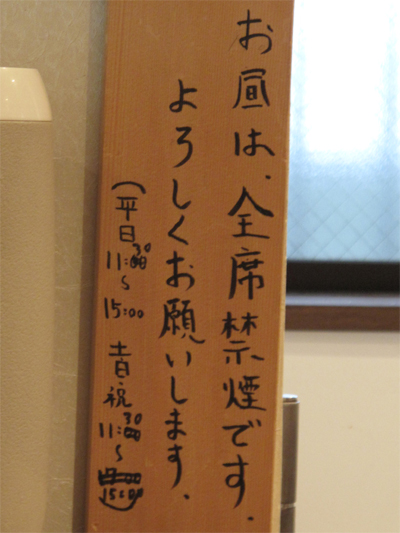 お昼は、全席禁煙です.
よろしくお願いします.
(平日 11:30 〜 15:00 土日・祝 11:30 〜 15:00)